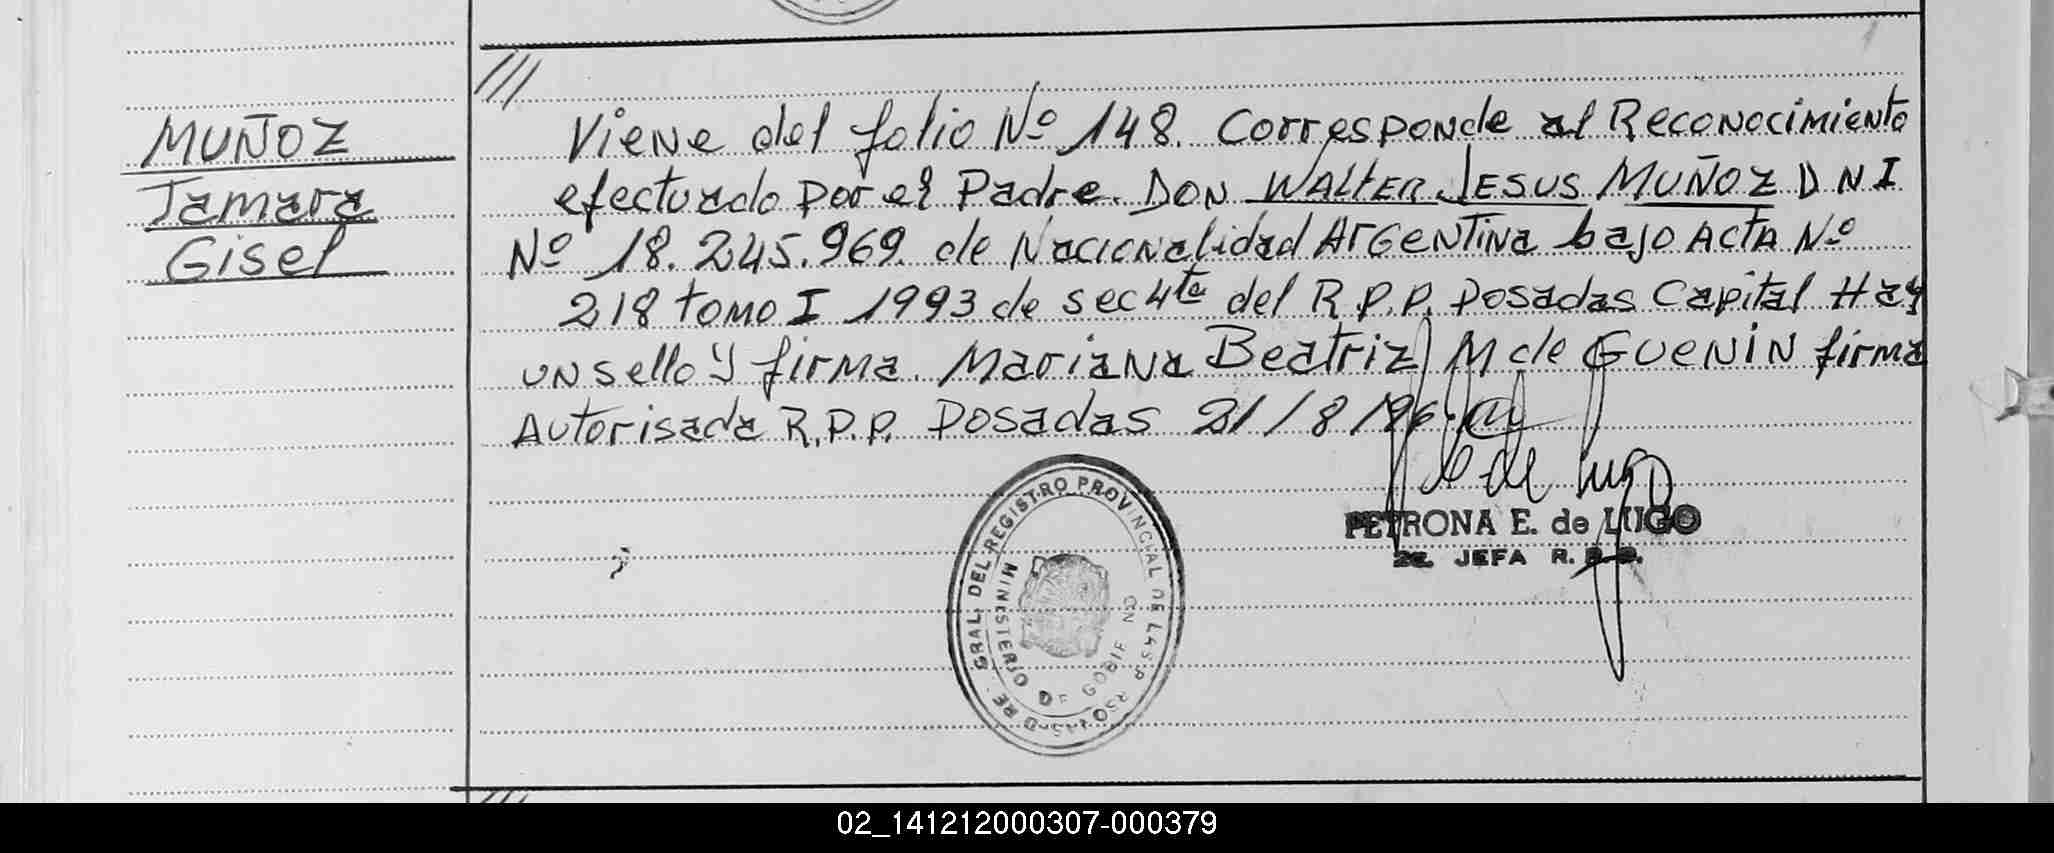 MUÑOZ
Tamara
Gisel
///
Viene del folio Nº 148. Corresponde al Reconocimiento
efectuado por el Padre. DON WALTER JESUS MUÑOZ D N I
Nº 18.245.969. de Nacionalidad ArGENTINA bajo ActA Nº
218 tomo I 1993 de sec 4ta del R.P.P. Posadas Capital Hay
un sello y firma. Mariana Beatriz M de GUENIN firma
Autorisada R.P.P. Posadas 21/8/96.
PETRONA E. de LUGO
2a. JEFA R. P. P.
GRAL. DEL REGISTRO PROVINCIAL DE LAS P RSO AS
MINISTERIO DE GOBIE NO
02_141212000307-000379